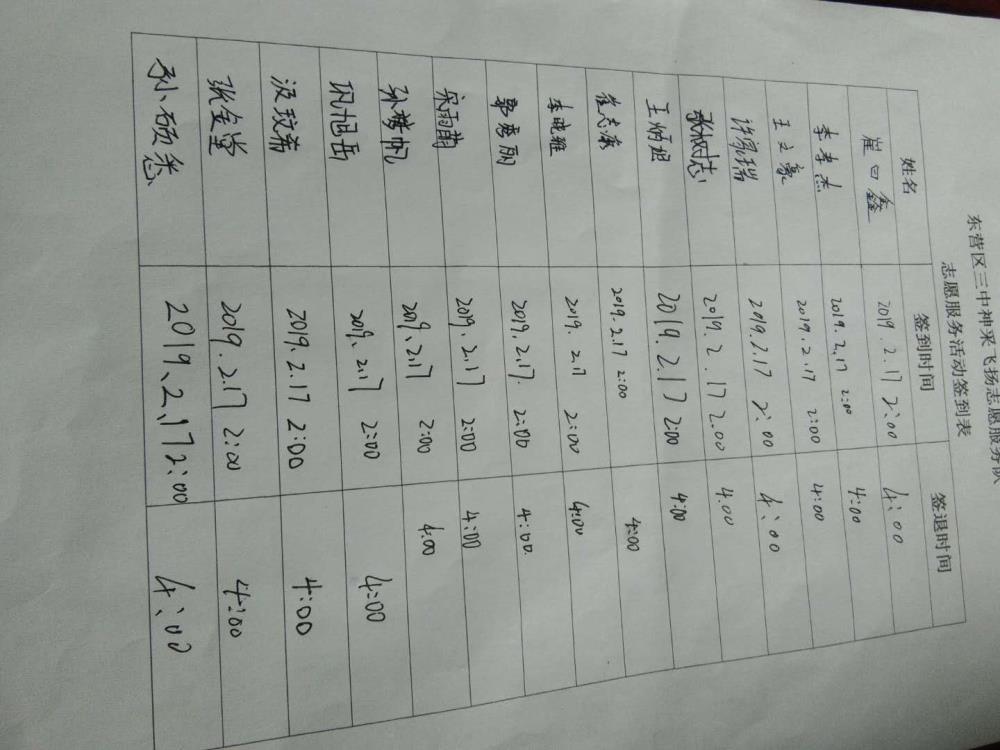 东营区三中神采飞扬志愿服务队
志愿服务活动签到表
姓名 签到时间 签退时间
崔 鑫 2019.2.17 2:00 4:00
李孝杰 2019.2.17 2:00 4:00
王立豪 2019.2.17 2:00 4:00
许家瑞 2019.2.17 2:00 4:00
张树志 2019.2.17 2.00 4.00
王 2019.2.17 2:00 4:00
崔志康 2019.2.17 2:00 4:00
李晓雅 2019.2.17 2:00 4:00
郭秀丽 2019.2.17. 2:00 4:00.
宋雨萌 2019.2.17 2:00 4:00
孙梦帆 2019.2.17 2:00 4:00
巩旭岳 2019.2.17 2:00 4:00
汲玟希 2019.2.17 2:00 4:00
张金堂 2019.2.17 2:00 4:00
孙硕 2019.2.17 2:00 4:00